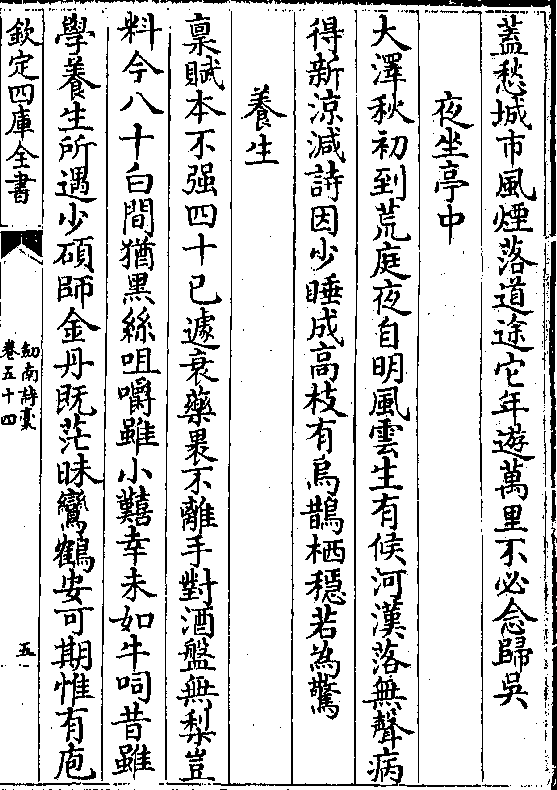 蓋愁城市風煙落道途它年遊萬里不必念歸吳
夜坐亭中
大澤秋初到荒庭夜自明風雲生有候河漢落無聲病
得新涼減詩因少睡成高枝有烏鵲栖穩若為驚
養生
稟賦本不强四十已遽衰藥裹不離手對酒盤無梨豈
料今八十白間猶黑絲咀嚼雖小囏幸未如牛呞昔雖
學養生所遇少碩師金丹既茫昧鸞鶴安可期惟有庖
欽定四庫全書
劒南詩稾
卷五十四
五